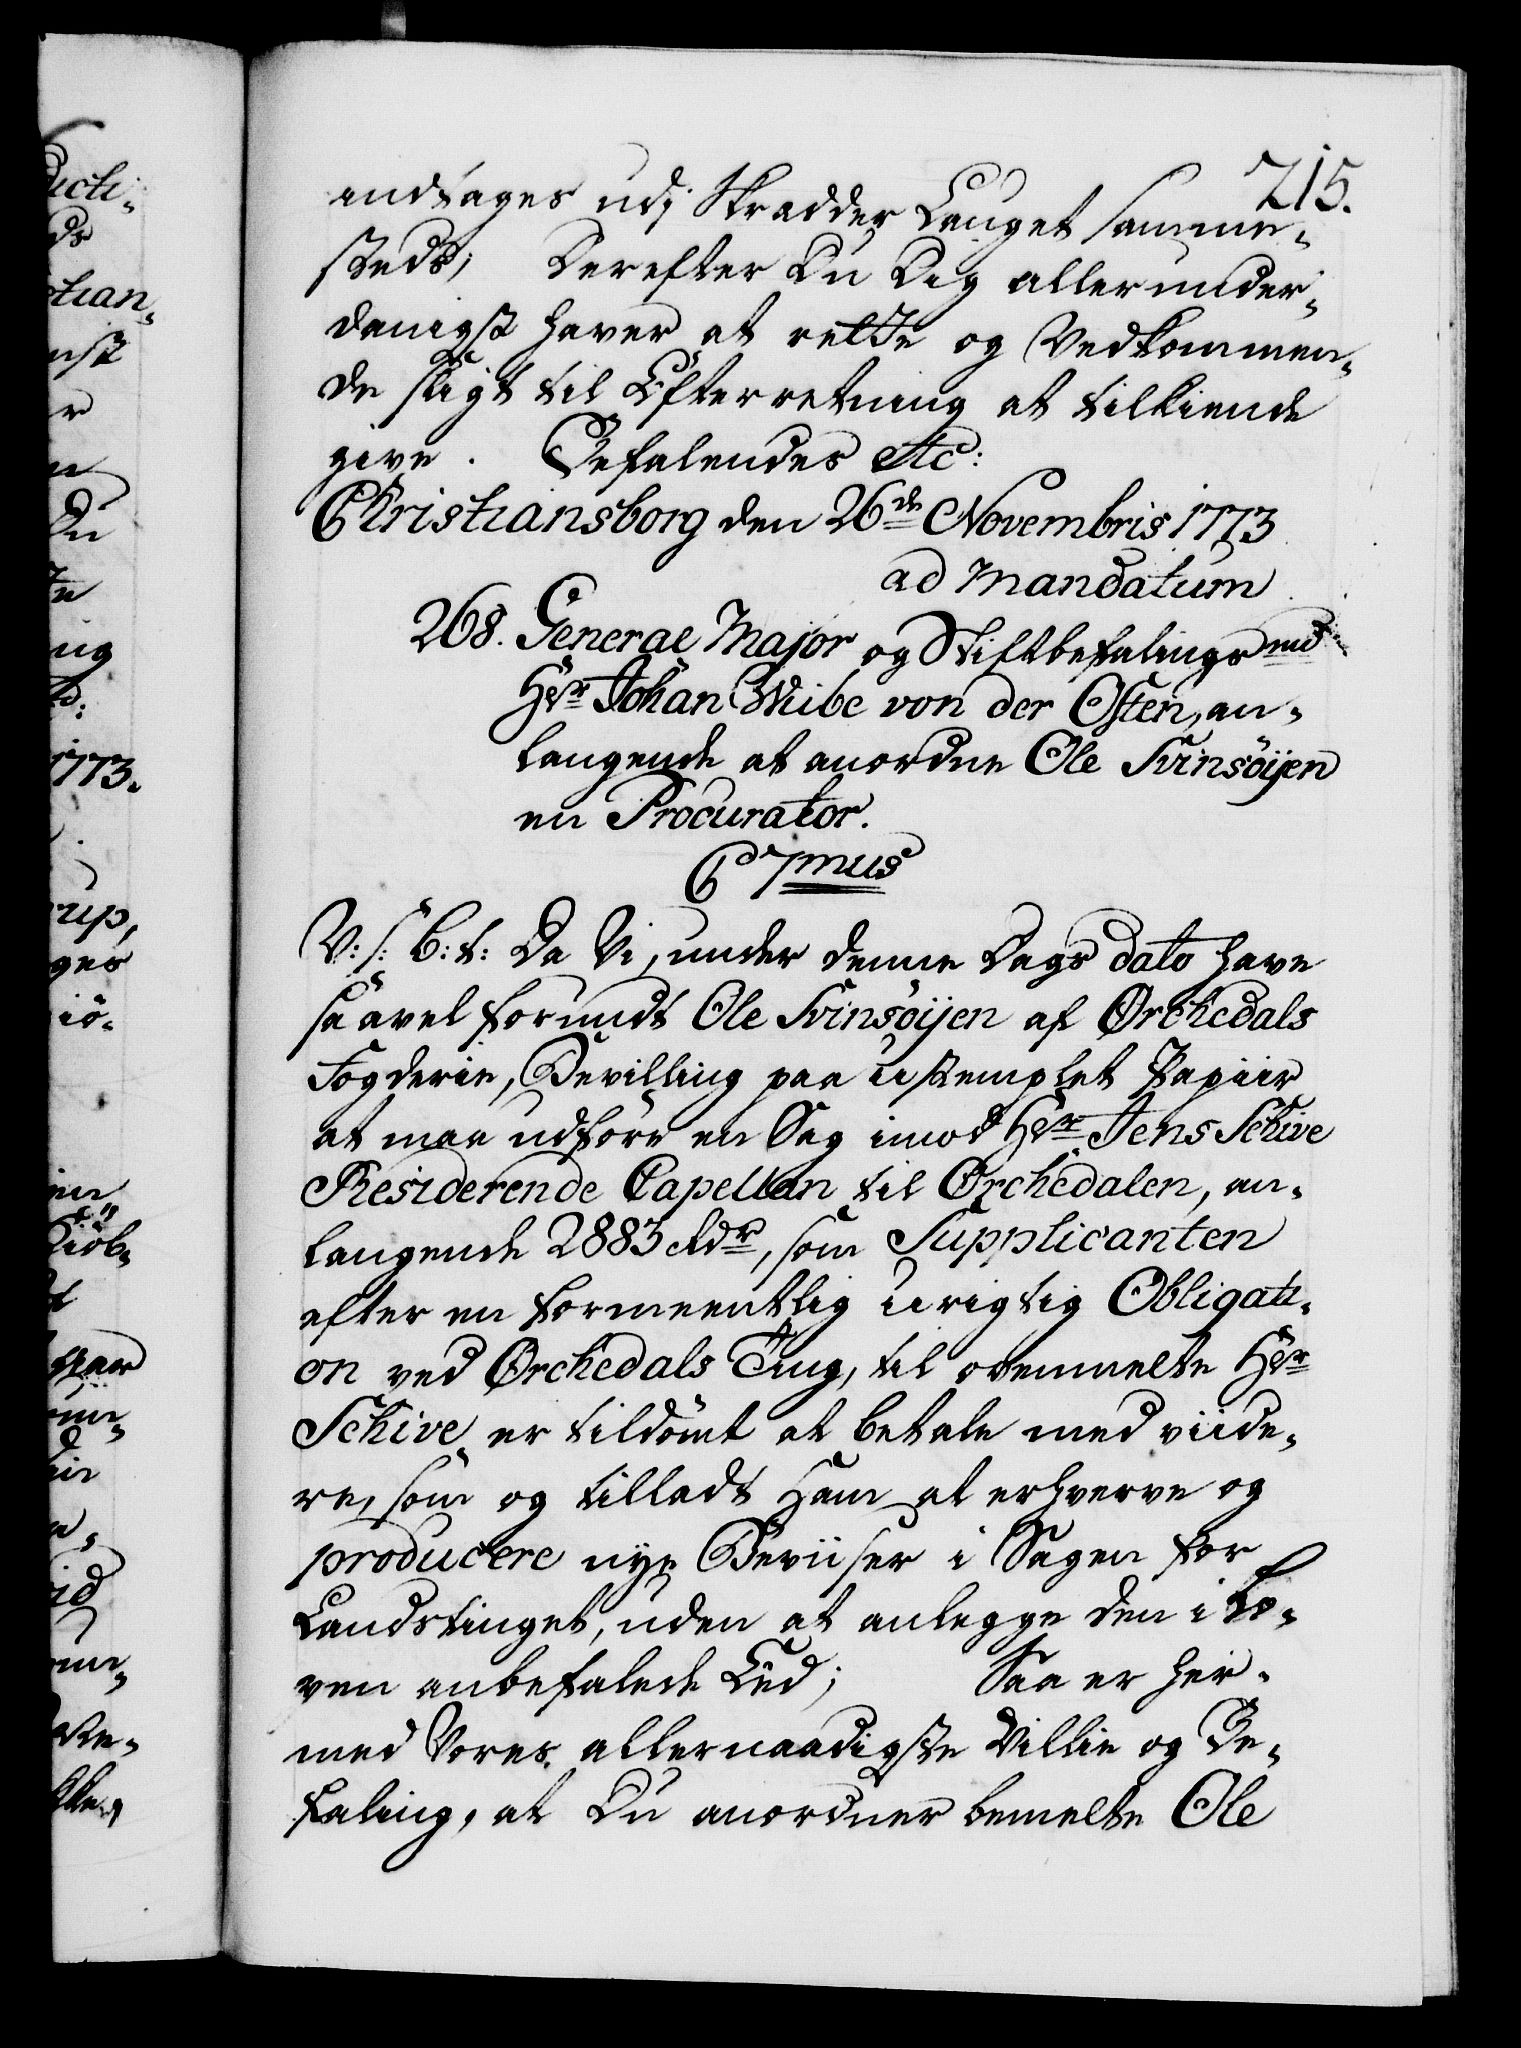 215.
indtages udj Skradder Lauget samme-
steds; Derefter Du Dig allerunder-
danigst haver at rette og Vedkommen-
de sligt til Efterretning at tilkiende
give. Befalendes etc:
Christiansborg den 26de Novembris 1773
ad Mandatum
268. General Major og Stiftbefalingsmd
Hr Johan Wibe von der Osten, an-
langende at anordne Ole Svinsöijen
en Procurator.
C 7mus
V: s: B: t: Da Vi, under denne Dags dato have
saavel forundt Ole Svinsöijen af Ørchedals
Fogderie, Bevilling paa ustemplet Papiir
at maa udföre en Sag imod Hr Jens Schive
Residerende Capellan til Orchedalen, an-
langende 2883 rdr, som Supplicanten
efter en formeentlig urigtig Obligati-
on ved Ørchedals Ting, til ovenmelte Hr
Schive er tildömt at betale med viide-
re, som og tilladt ham at erhverve og
producere nye Beviiser i Sagen for
Landstinget, uden at anlegge den i Lo-
ven anbefalede Eed; Saa er her-
med Vores allernaadigste Villie og Be-
faling, at Du anordner bemelte Ole